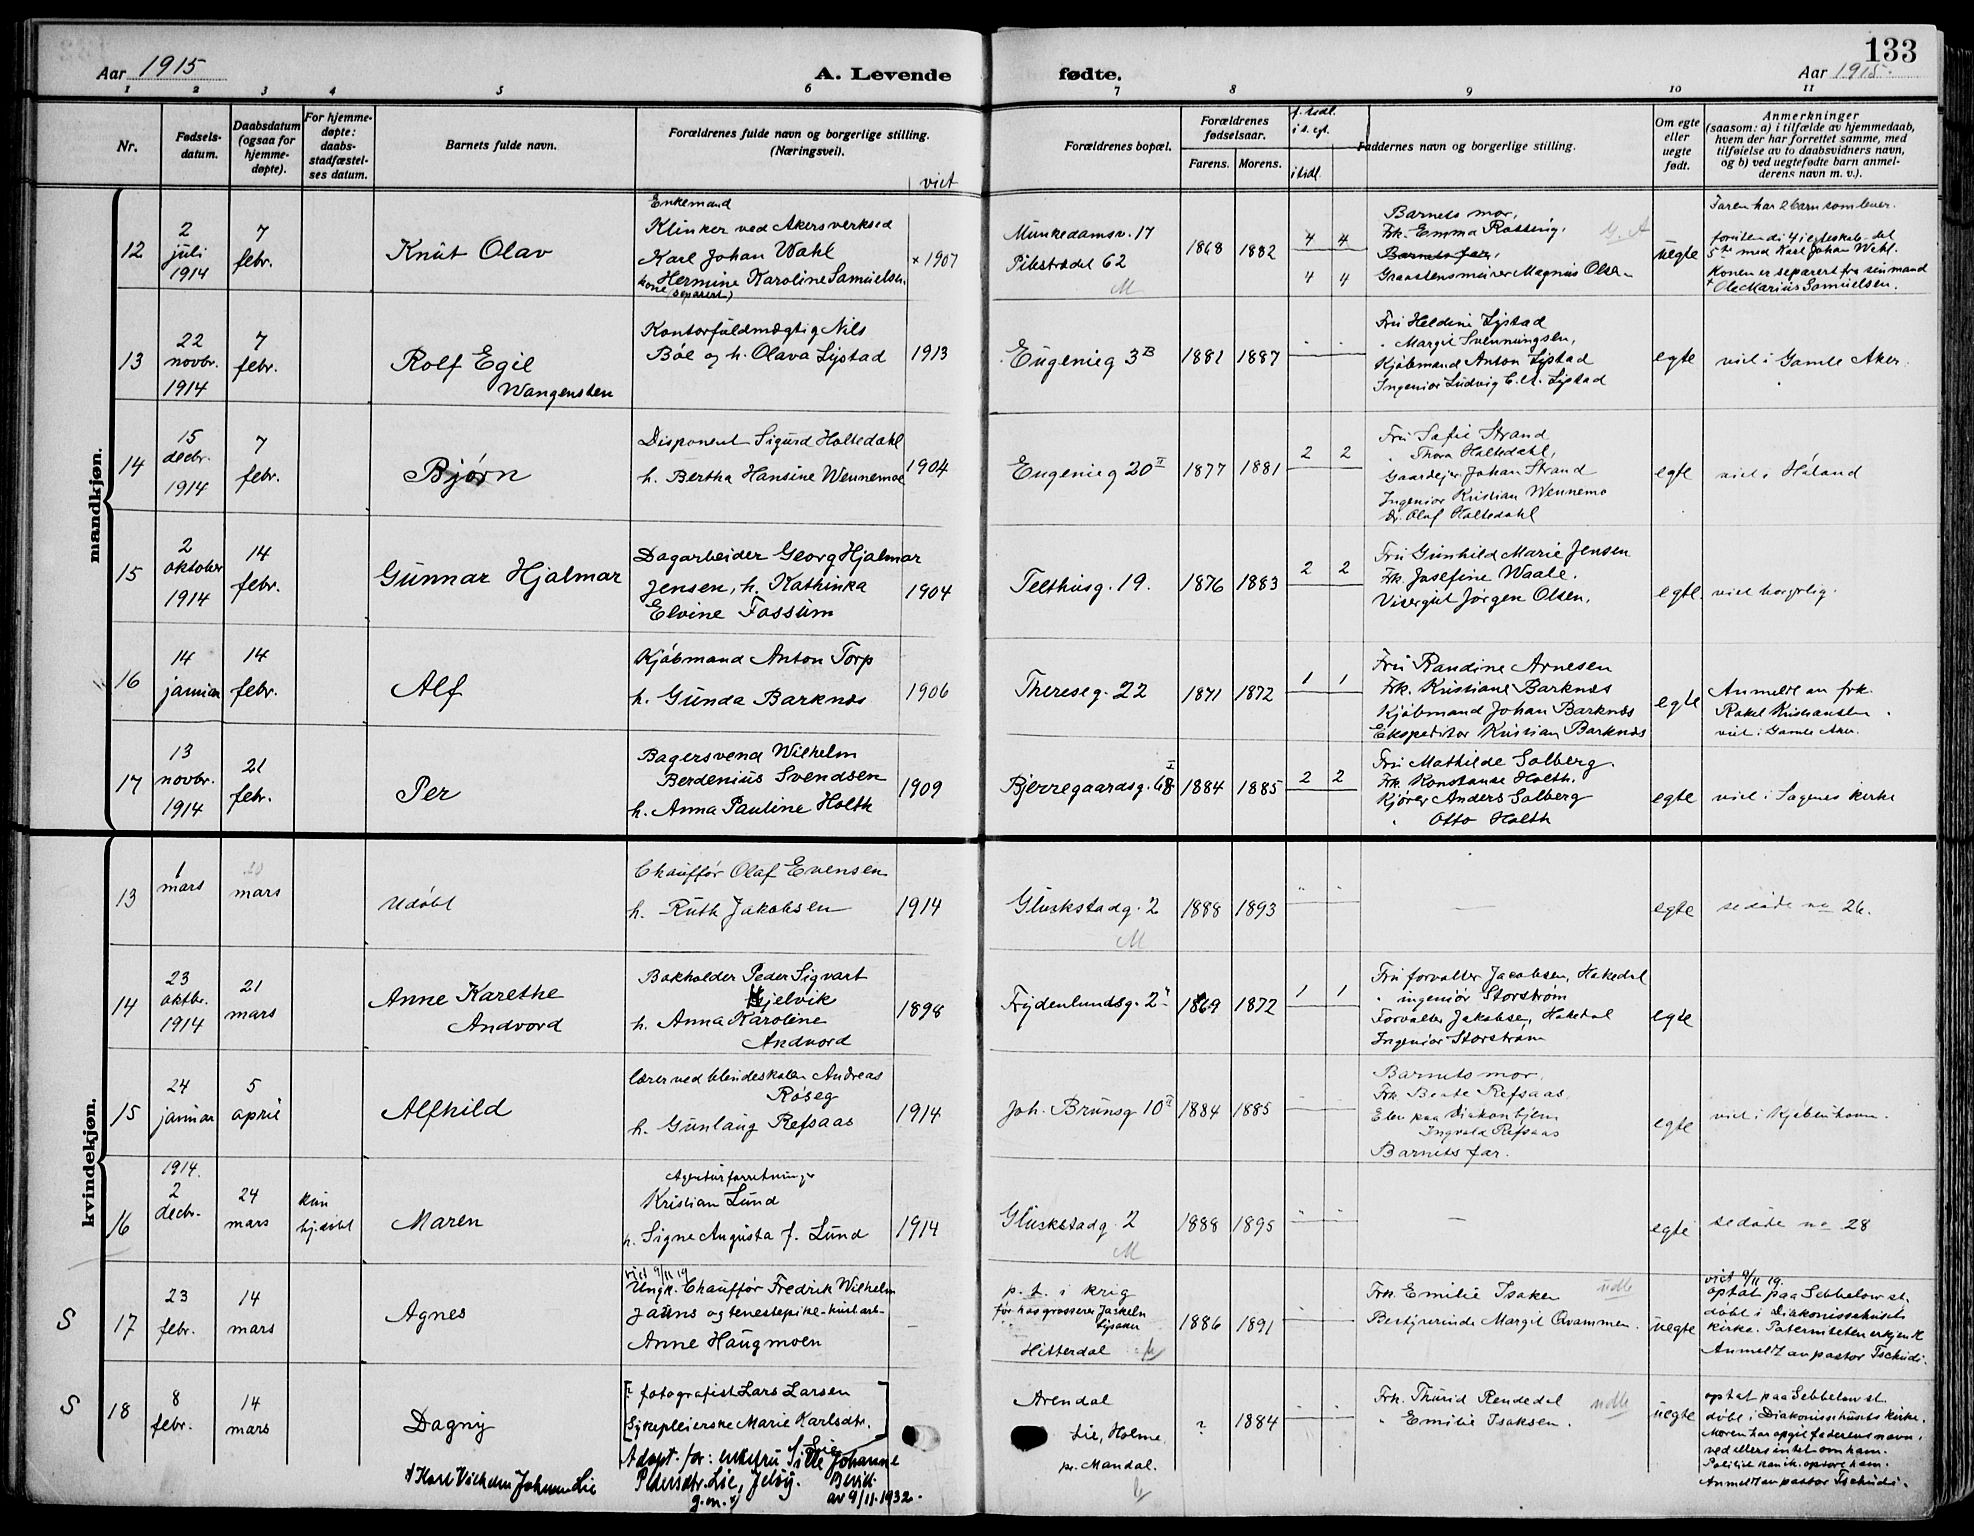 Aar 1915
A. Levende fødte.
133
Aar 1915.
1 2 3 4 5 6 7 8 9 10 11
Nr.
Fødsels-
datum.
Daabsdatum
(ogsaa for
hjemme-
døpte).
For hjemme-
døpte:
daabs-
stadfæstel-
ses datum.
Barnets fulde navn.
Forældrenes fulde navn og borgerlige stilling.
(Næringsvei).
viet
Forældrenes bopæl.
Forældrenes
fødselsaar.
Farens. Morens.
Faddernes navn og borgerlige stilling.
Om egte
eller
uegte
født.
Anmerkninger
(saasom: a) i tilfælde av hjemmedaab,
hvem der har forrettet samme, med
tilføielse av to daabsvidners navn,
og b) ved uegtefødte barn anmel-
derens navn m. v.).
mandkjøn.
12
2
juli
1914
7
febr.
Knut Olav
Enkemand
Klinker ved Akersverksed
Karl Johan Wahl
kone Hermine Karoline Samuelsen
(separert)
x 1907
Munkedamsv. 17
Pilestrædet 62
M
1868 1882
4 4
4 4
Barnets mor,
Frk. Emma Rossing,
Barnets far,
Graastensmurer Magnus Olsen
uegte
Faren har 2 barn som lever.
foruten de 4 i egteskab. det
5te med Karl Johan Wahl.
Konen er separert fra sin mand
Ole Marius Samuelsen.
13
22
novbr.
1914
7
febr.
Rolf Egil
Wangensten
Kontorfuldmægtig Nils
Bøe og h. Olava Lystad
1913
Eugenieg 3B
1881 1887
Fru Heldine Lystad
" Margit Svenningsen,
Kjøbmand Anton Lystad
Ingeniør Ludvig C. A. Lystad
egte
viet i Gamle Aker.
14
15
decbr.
1914
7
febr.
Bjørn
Disponent Sigurd Holtedahl
h. Bertha Hansine Wennemoe
1904
Eugenieg 20 I
1877 1881
2 2
Fru Sofie Strand
" Thora Holtedahl,
Gaardejer Johan Strand
Ingeniør Kristian Wennemo
Dr. Olaf Holtedahl
egte
viet i Høland
15
2
oktober
1914
14
febr.
Gunnar Hjalmar
Dagarbeider Georg Hjalmar
Jensen, h. Kathinka
Elvine Fossum
1904
Telthusg. 19.
1876 1883
2 2
Fru Gunhild Marie Jensen
Frk. Josefine Waale.
Visergut Jørgen Olsen,
egte.
viet borgerlig.
16
14
januar
14
febr.
Alf
Kjøbmand Anton Torp
h. Gunda Barknæs
1906
Thereseg. 22
1871 1872
1 1
Fru Randine Arnesen
Frk. Kristiane Barknæs
Kjøbmand Johan Barknæs
Ekspeditør Kristian Barknæs
egte
Anmeldt av frk.
Rakel Kristiansen
viet i Gamle Aker.
17
13
novbr.
1914
21
febr.
Per
Bagersvend Wilhelm
Berdenius Svendsen
h. Anna Pauline Holth
1909
Bjerregaardsg. 68 I
1884 1885
2 2
Fru Mathilde Solberg.
Frk. Konstanse Holth.
Kjører Anders Solberg
" Otto Holth
egte
viet i Sagenes kirke
kvindekjøn.
13
1
mars
20
mars
Udøbt
Chauffør Olaf Evensen
h. Ruth Jakobsen
1914
Gluckstadg. 2
M
1888 1893
—
egte
se døde no 26.
14
23
oktbr.
1914
21
mars
Anne Karethe
Andvord
Bokholder Peder Sigvart
Hjelvik
h. Anna Karoline
Andvord
1898
Frydenlundsg. 2
1869 1872
1 1
Fru forvalter Jacobsen, Hakedal
" ingeniør Storstrøm
Forvalter Jakobsen, Hakedal
Ingeniør Storstrøm
egte
15
24
januar
5
april
Alfhild
lærer ved blindeskolen Andreas
Røseg
h. Gunlaug Refsaas
1914
Joh. Brunsg 10 II
1884 1885
Barnets mor,
Frk. Beate Refsaas,
Elev paa Diakonhjem
Ingvald Refsaas
Barnets far.
egte
viet i Kjøbenhavn.
16
1914.
2
decbr.
24
mars
kun
hj.døbt
Maren
Agenturforretninger
Kristian Lund
h. Signe Augusta f. Lund
1914
Gluckstadg. 2
M
1888 1895
—
egte
se døde no 28
S
17
23
febr.
14
mars
Agnes
viet 9/11 19
Ungk. Chauffør Fredrik Wilhelm
Jauns og tenestepike-husarb-
Anne Haugmoen
—
p. t. i krig
før hos grosserer
Lysaker
Hitterdal
1886 1891
Frk. Emilie Isaksen
Bestyrerinde Margit Qvammen.
udb
uegte
viet 9/11 19.
optat paa Sebbelow st.
døbt i Diakonissehusets
kirke. Paterniteten erkjendt
Anmeldt av pastor Tschudi.
S
18
8
febr.
14
mars
Dagny
[: fotografist Lars Larsen
Sykepleierske Marie Karlsdtr.
f. Lie
Adopt. for: enkefru Sille Johanne
Pedersdtr. Lie, Jeløy. Bevill.
g.m. x) av 9/11. 1932.
x) Karl Vilhelm Johansen Lie
Arendal
Lie, Holme
pr. Mandal.
? 1884
Frk. Thurid Rendedal
" Emilie Isaksen.
udb
uegte
optat paa Sebbelow st.
døbt i Diakonissehusets kirke.
Moren har opgit faderens navn,
ved ellers intet om ham.
Anmeldt av pastor Tschudi.